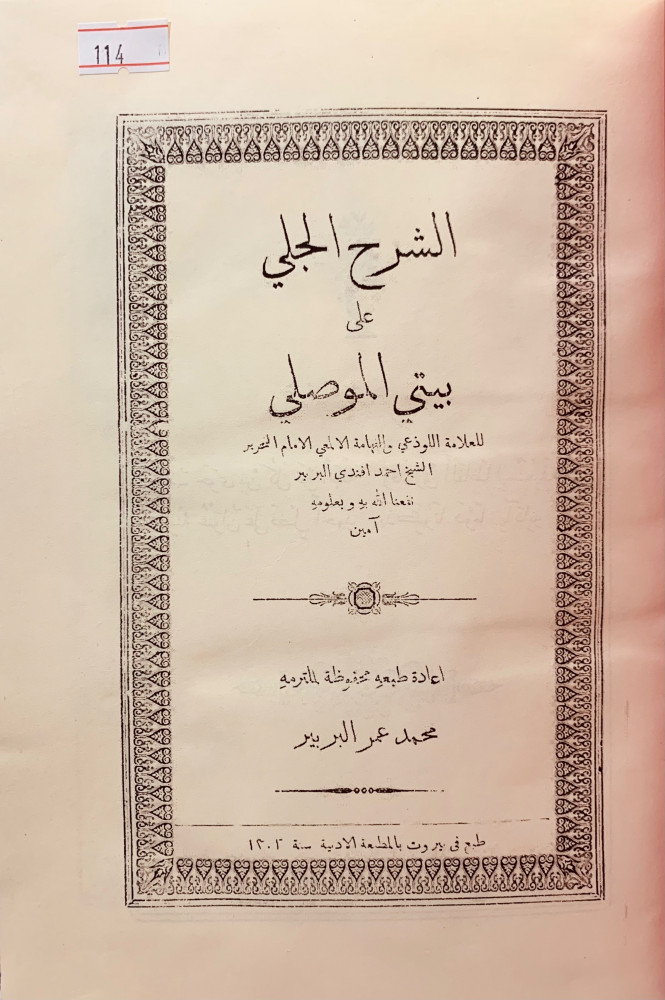 114
الشرح الجلي
على
بيتي الموصلي
للعلامة اللوذعي والفهامة الالمعي الامام النحرير
الشيخ احمد افندي البربير
نفعنا الله به وبعلومه
آمين
اعادة طبعه محفوظة لملتزمه
محمد عمر البربير
طبع في بيروت بالمطبعة الادبية سنة ١٣٠٢